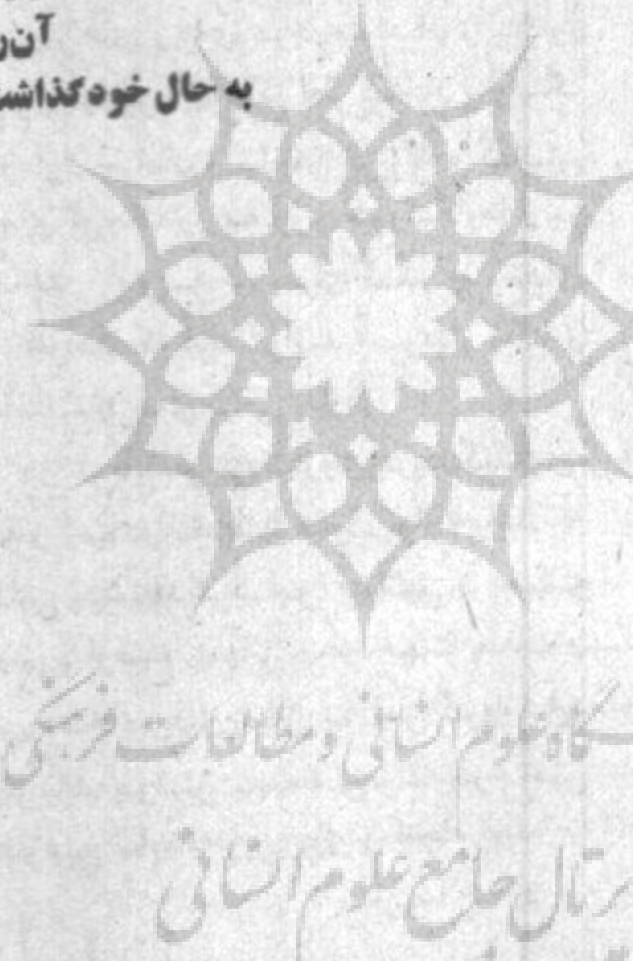 آن
به حال خود
گاه علوم انسانی و مطالعات فرهنگی
پرتال جامع علوم انسانی